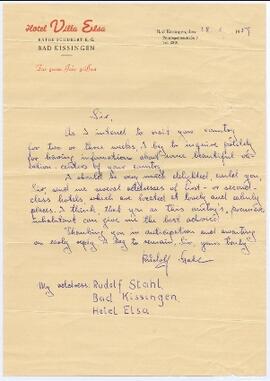 Hotel Villa Elsa
BAD KISSINGEN
Das ganze Jahr geöffnet
Bad Kissingen, den 18.
Sir,
As I intend to visit your country
for two or three weeks, I beg to inquire politely
for hearing informations about some beautiful
centers of your country.
I should be very much delighted, could you,
Sir, send me several addresses of first- or second-
class hotels which are located at lovely and
places. I think, that you as this
inhabitant can give me the best advice!
Thanking you in anticipation and awaiting
an early reply I beg to remain, Sir, yours truly
Rudolf Stahl
My address: Rudolf Stahl,
Bad Kissingen
Hotel Elsa